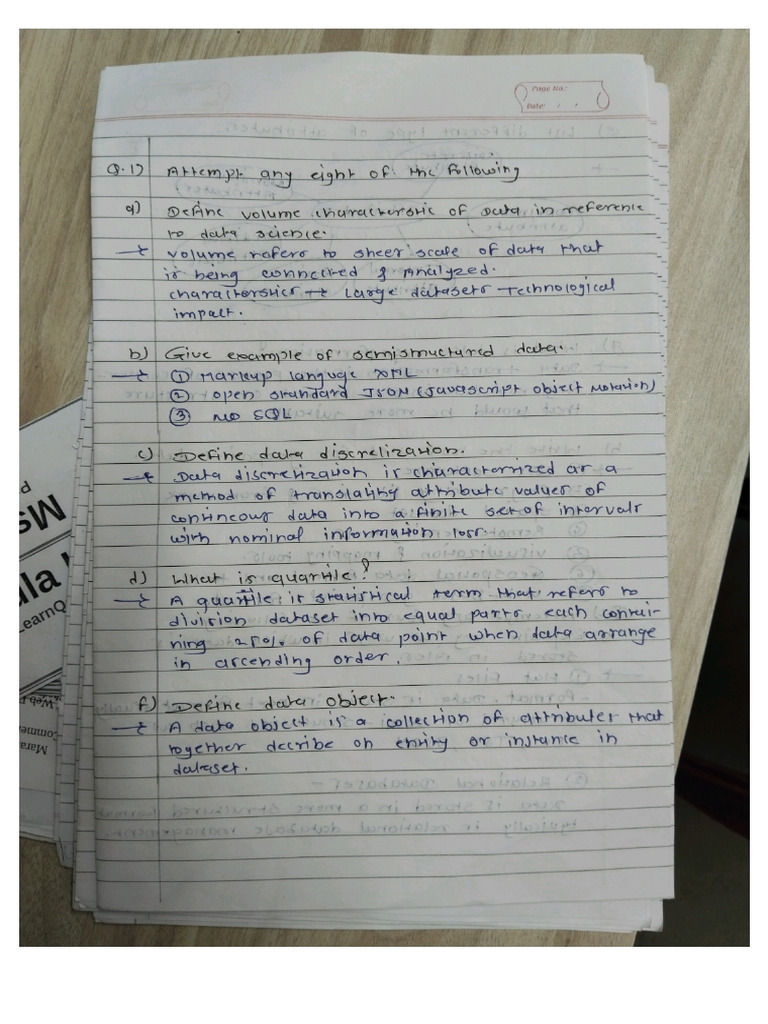 Page No.:
Date: / /
Q.1) Attempt any eight of the following
a) Define volume characteristic of Data in reference
to data science.
→ volume refers to sheer scale of data that
is being connected & Analyzed.
characteristics → Large datasets Technological
impact.
b) Give example of semistructured data.
→ ① Markup languge XML
② open standard JSON (Javascript object Notation)
③ NO SQL
c) Define data discrelization.
→ Data discretization is charactornized as a
method of translating attribute values of
contineous data into a finite set of intervals
with nominal information loss.
d) What is quartile?
→ A quartile is statistical term that refers to
division dataset into equal parts each contai-
ning 25% of data point when data arrange
in ascending order.
f) Define data object.
→ A data object is a collection of attributes that
together decribe on entity or instance in
dataset.
MS
LearnQ
Web
Mara
Comme